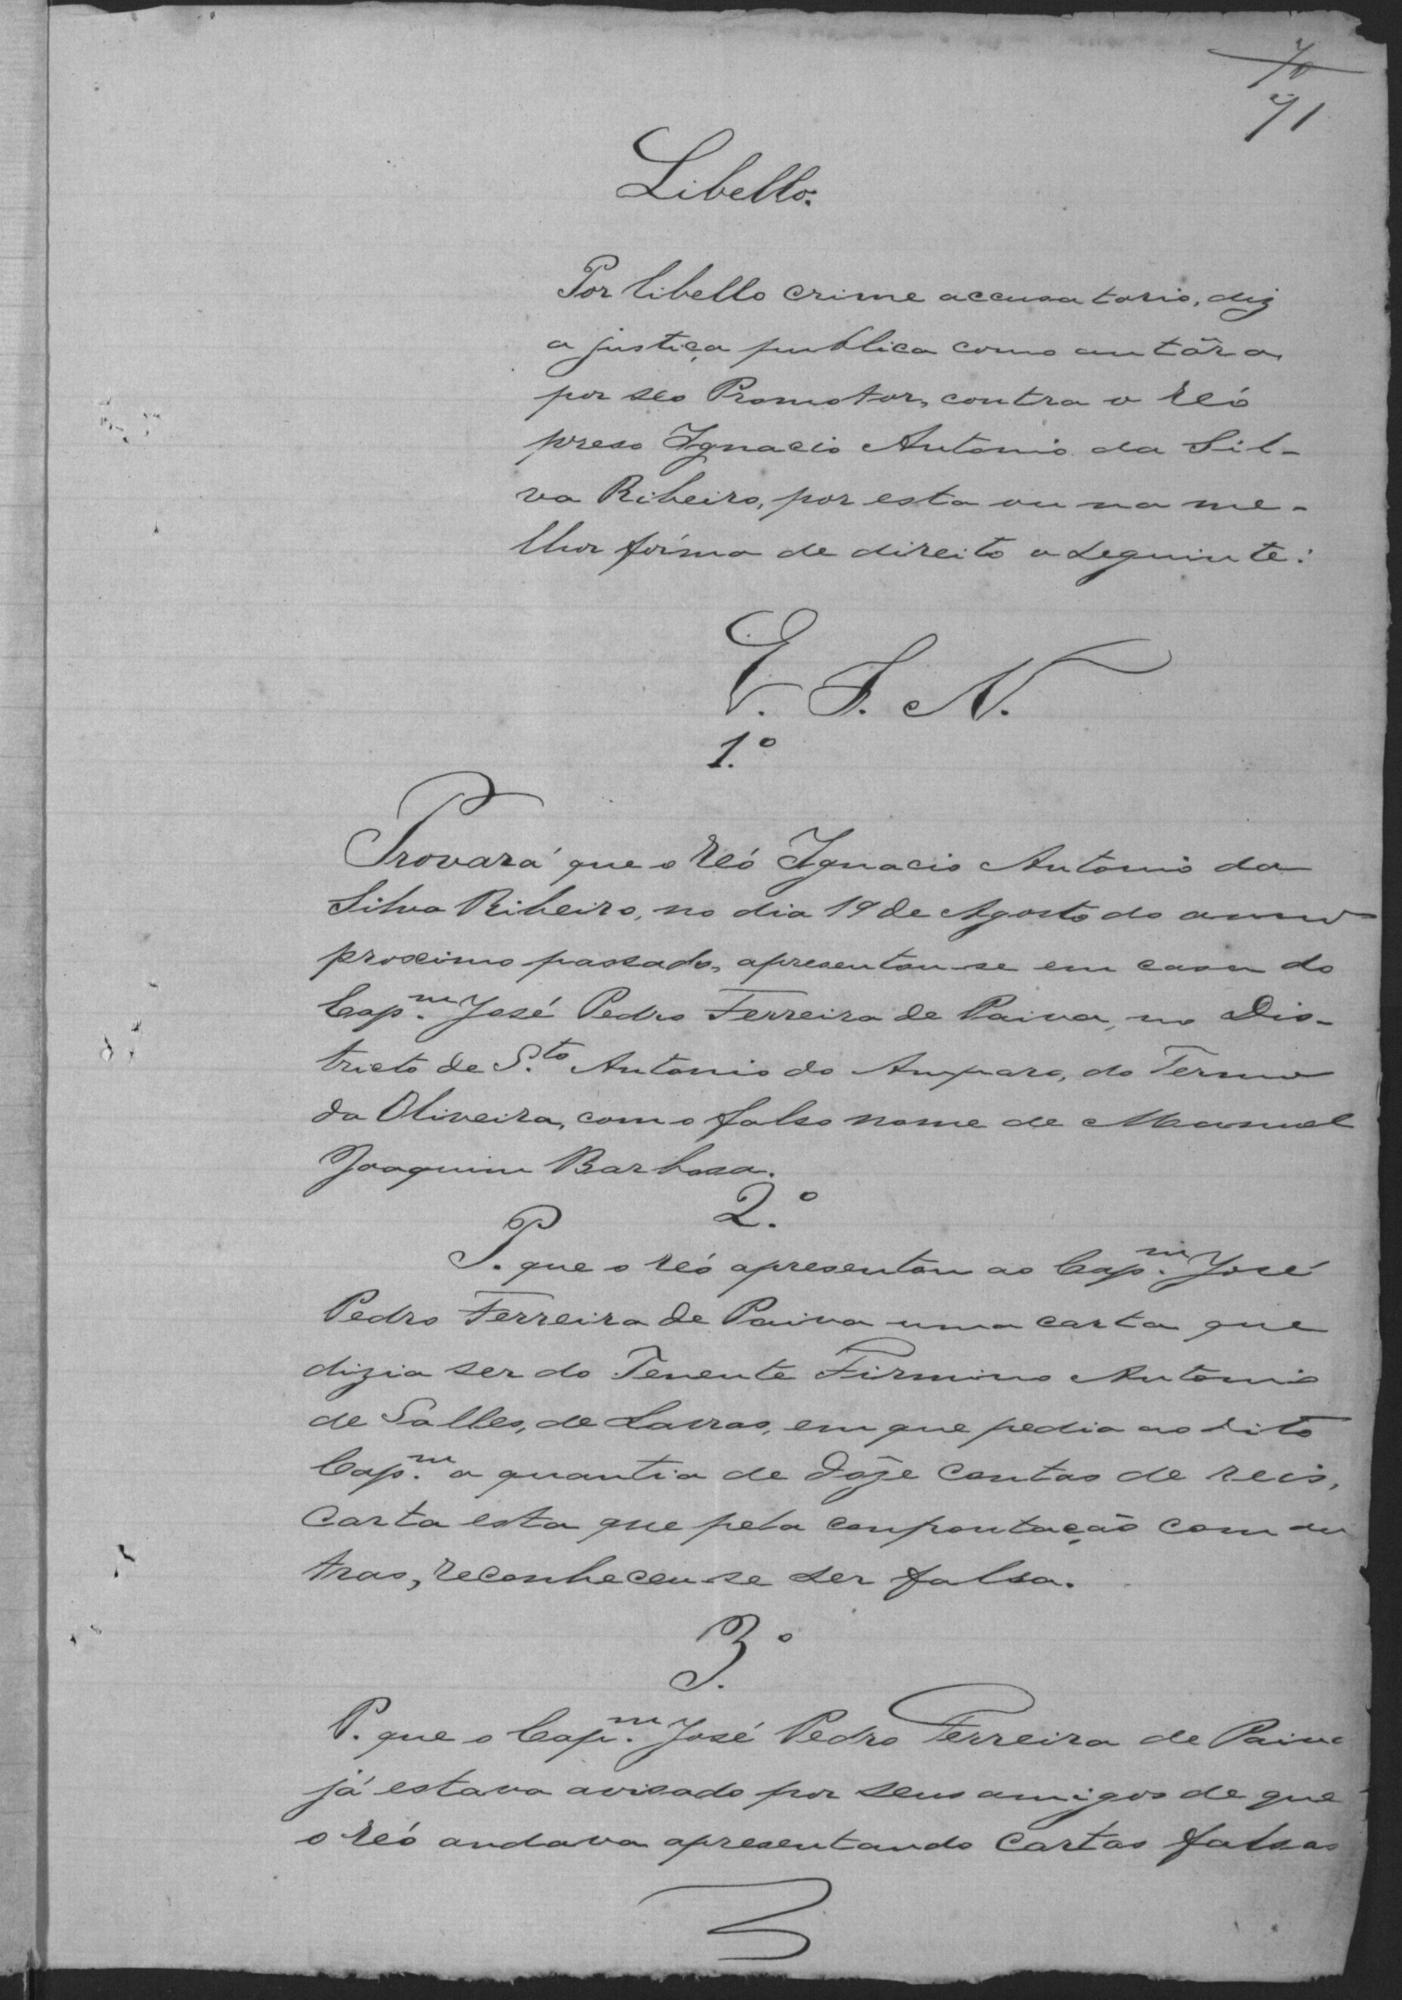 70
71
Libello.
Por libello crime accusatorio, diz
a justiça publica como autôra
por seo Promotor, contra o reó
preso Ignacio Antonio da Sil-
va Ribeiro, por esta ou na me-
lhor fórma de direito o seguinte:
E. S. N.
1.º
Provará que o reó Ignacio Antonio da
Silva Ribeiro, no dia 19 de Agosto do anno
proximo passado, apresentou-se em casa do
Cap.m José Pedro Ferreira de Paiva, no Dis-
tricto de S.to Antonio do Amparo, do Termo
da Oliveira, com o falso nome de Manoel
Joaquim Barbosa.
2.º
P. que o reó apresentou ao Cap.m José
Pedro Ferreira de Paiva uma carta que
dizia ser do Tenente Firmino Antonio
de Salles, de Lavras, em que pedia ao dito
Cap.m a quantia de dôze contos de reis,
carta esta que pela confrontação com ou
tras, reconheceu-se ser falsa.
3.º
P. que o Cap.m José Pedro Ferreira de Paiva
já estava avisado por seus amigos de que
o reó andava apresentando cartas falsas